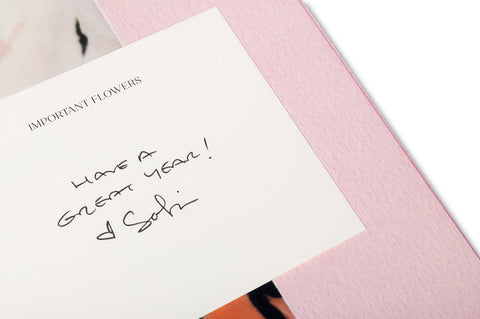 IMPORTANT FLOWERS
HAVE A
GREAT YEAR!